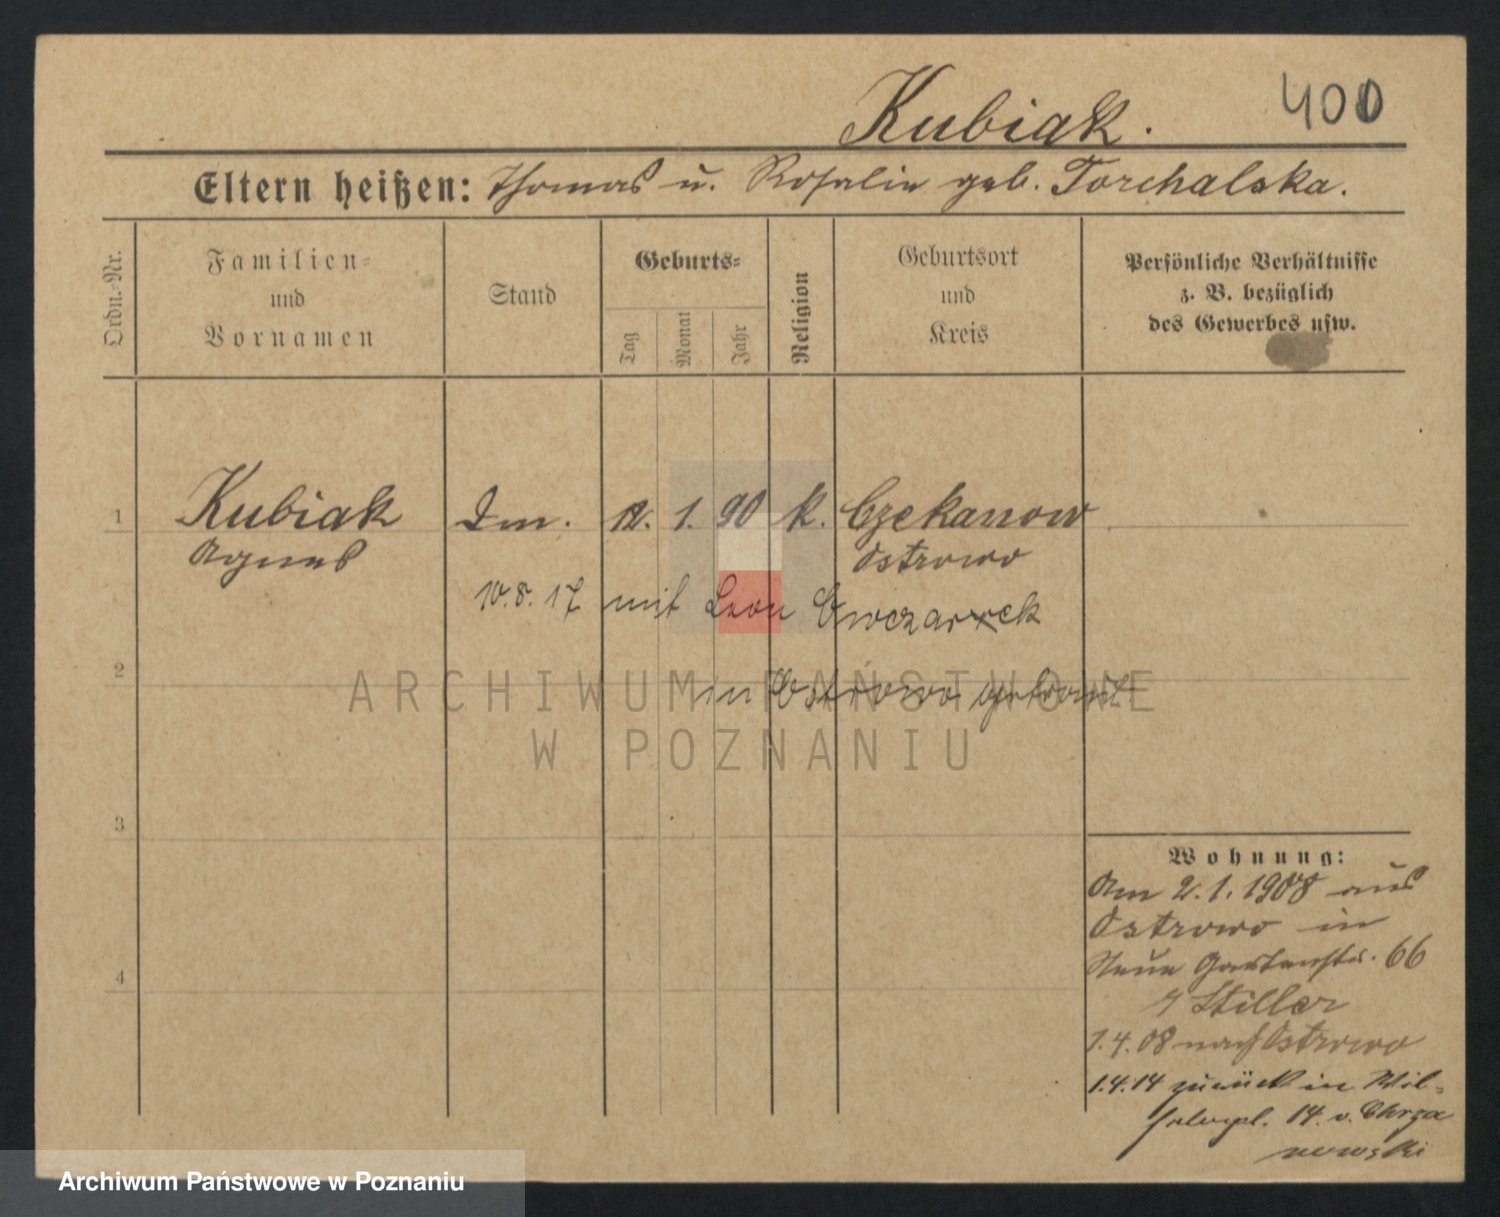 400
Kubiak.
Eltern heißen: Thomas u. Rosalie geb. Torchalska.
Ordn.-Nr.
Familien- und Vornamen
Stand
Geburts-
Tag
Monat
Jahr
Religion
Geburtsort und Kreis
Persönliche Verhältnisse z. B. bezüglich des Gewerbes usw.
1 Kubiak 12. 1. 90 k. Czekanow
Agnes Ostrowo
10.8.17 mit Leon Owczarek
2 in Ostrowo getraut
3
4
Wohnung:
Am 2.1.1908 aus
Ostrowo in
Neue Gartenstr. 66
Stiller
1.4.08 nach Ostrowo
1.4.14 zurück in Wil-
helmpl. 14 v. Chrza
nowski
ARCHIWUM PAŃSTWOWE
W POZNANIU
Archiwum Państwowe w Poznaniu